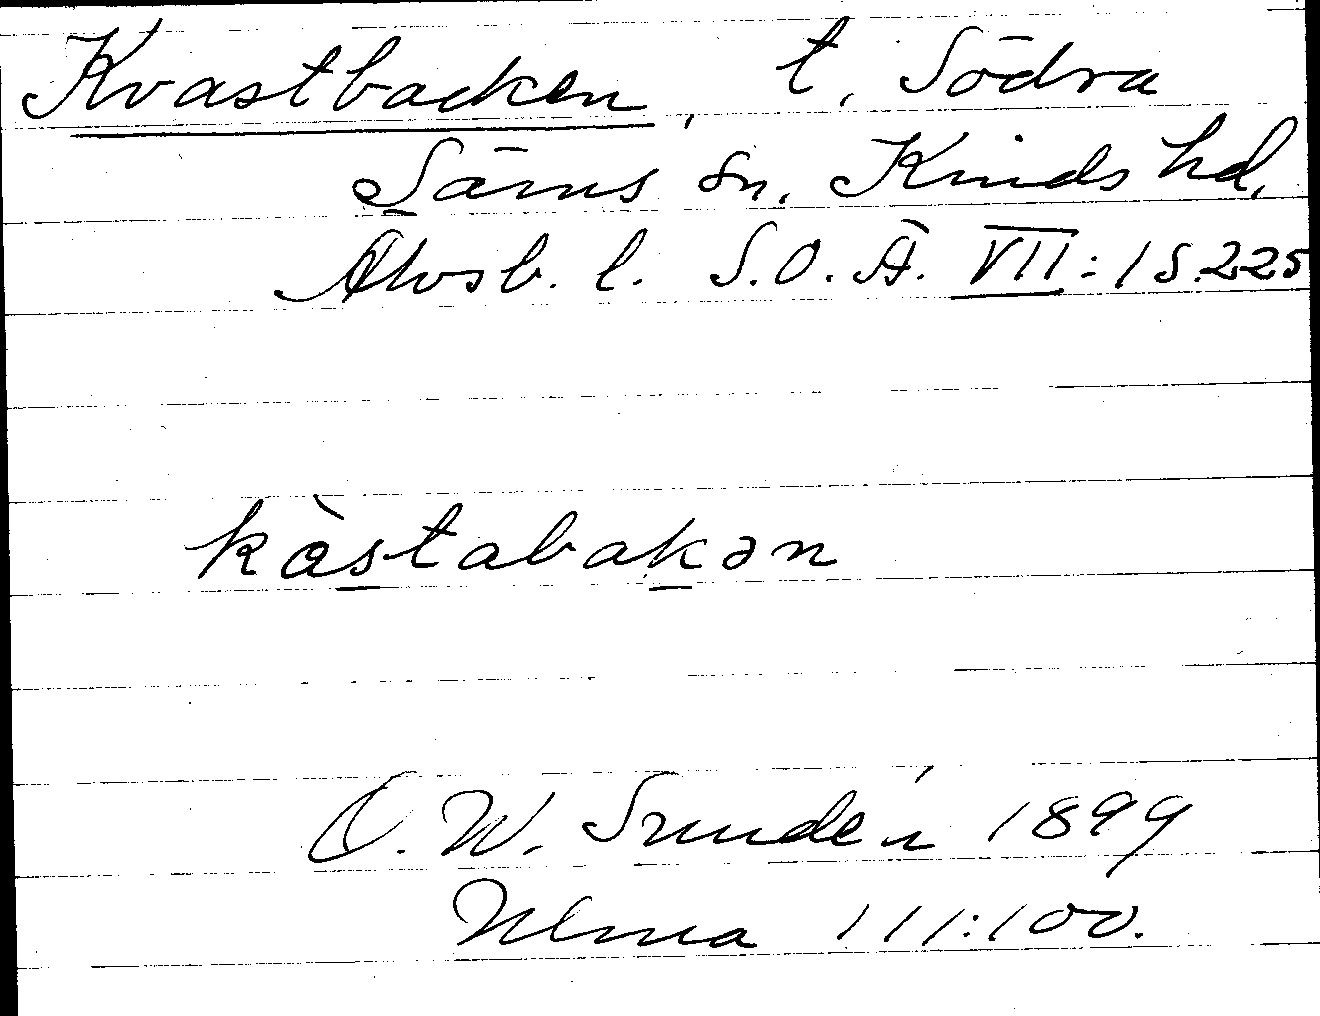 Kvastbacken, t. Södra
Säms sn. Kinds hd.
Älvsb. l. S.O.Ä. VII:1 S.225
kàstabakən
O. W. Sundén 1899
Ulma 111:100.